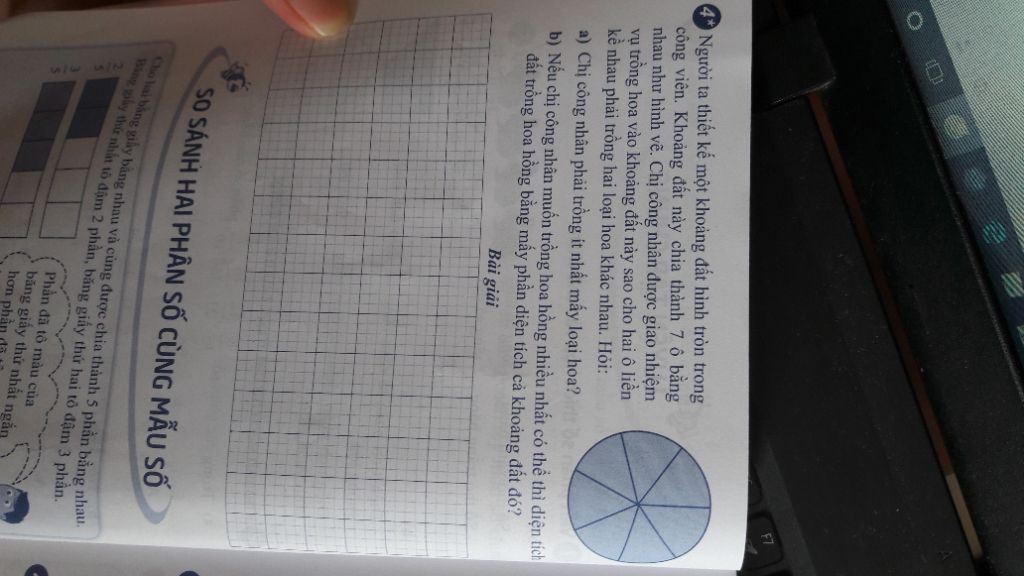 4* Người ta thiết kế một khoảng đất hình tròn trong
công viên. Khoảng đất này chia thành 7 ô bằng
nhau như hình vẽ. Chị công nhân được giao nhiệm
vụ trồng hoa vào khoảng đất này sao cho hai ô liền
kề nhau phải trồng hai loại hoa khác nhau. Hỏi:
a) Chị công nhân phải trồng ít nhất mấy loại hoa?
b) Nếu chị công nhân muốn trồng hoa hồng nhiều nhất có thể thì diện tích
đất trồng hoa hồng bằng mấy phần diện tích cả khoảng đất đó?
Bài giải
SO SÁNH HAI PHÂN SỐ CÙNG MẪU SỐ
Cho hai băng giấy bằng nhau và cùng được chia thành 5 phần bằng nhau.
Băng giấy thứ nhất tô đậm 2 phần, băng giấy thứ hai tô đậm 3 phần.
2/5
3/5
Phần đã tô màu của
băng giấy thứ nhất ngắn
hơn phần đã
F7